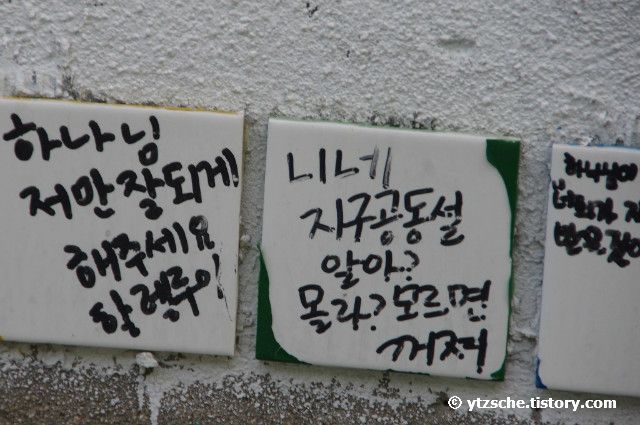 하나님
저만 잘되게
해주세요
니네
지구공동설
알아?
몰라? 모르면
꺼져
하나님이
© ytzsche.tistory.com